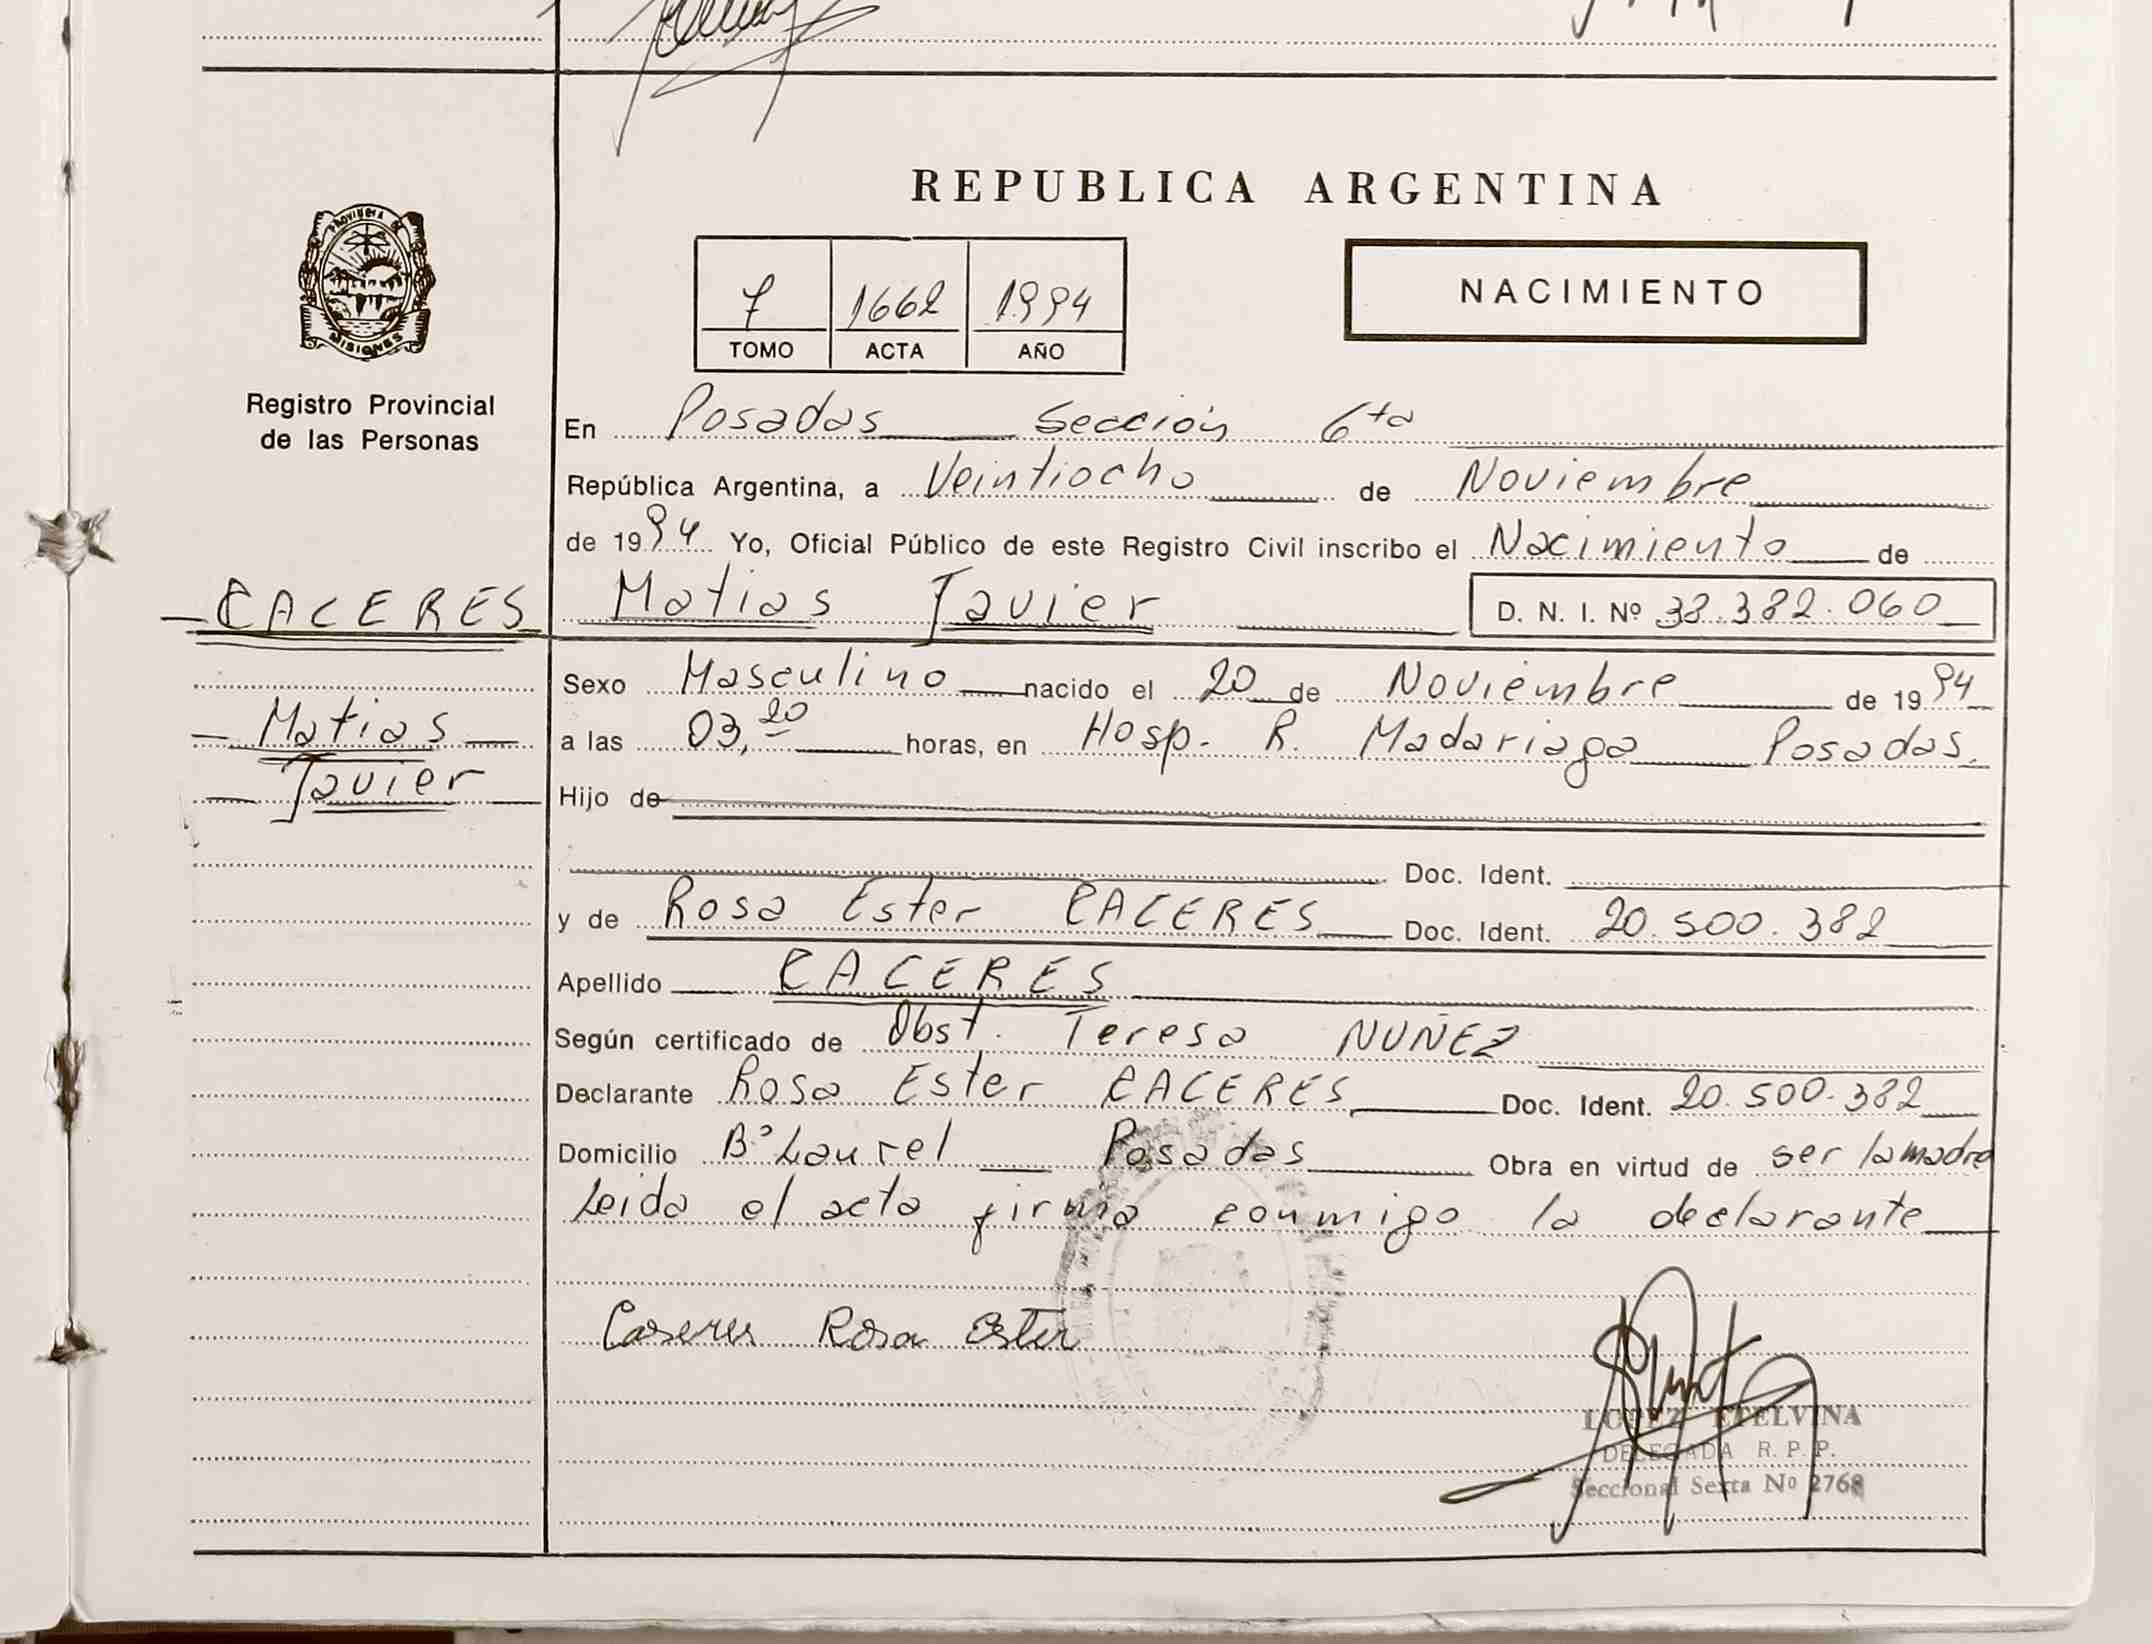 REPUBLICA ARGENTINA
PROVINCIA DE
MISIONES
Registro Provincial
de las Personas
7 1662 1994
TOMO ACTA AÑO
NACIMIENTO
En Posadas Sección 6ta
República Argentina, a Veintiocho de Noviembre
de 1994 Yo, Oficial Público de este Registro Civil inscribo el Nacimiento de
CACERES Matias Javier D. N. I. Nº 38.382.060
Sexo Masculino nacido el 20 de Noviembre de 1994
Matias
a las 03,20 horas, en Hosp. R. Madariaga Posadas.
Javier
Hijo de
Doc. Ident.
y de Rosa Ester CACERES Doc. Ident. 20.500.382
Apellido CACERES
Según certificado de Obst. Teresa NUÑEZ
Declarante Rosa Ester CACERES Doc. Ident. 20.500.382
Domicilio Bº Laurel Posadas Obra en virtud de ser la madre
Leida el acta firma conmigo la declarante
Caseres Rosa Ester
LOPEZ ETELVINA
DELEGADA R. P. P.
Seccional Sexta Nº 2768